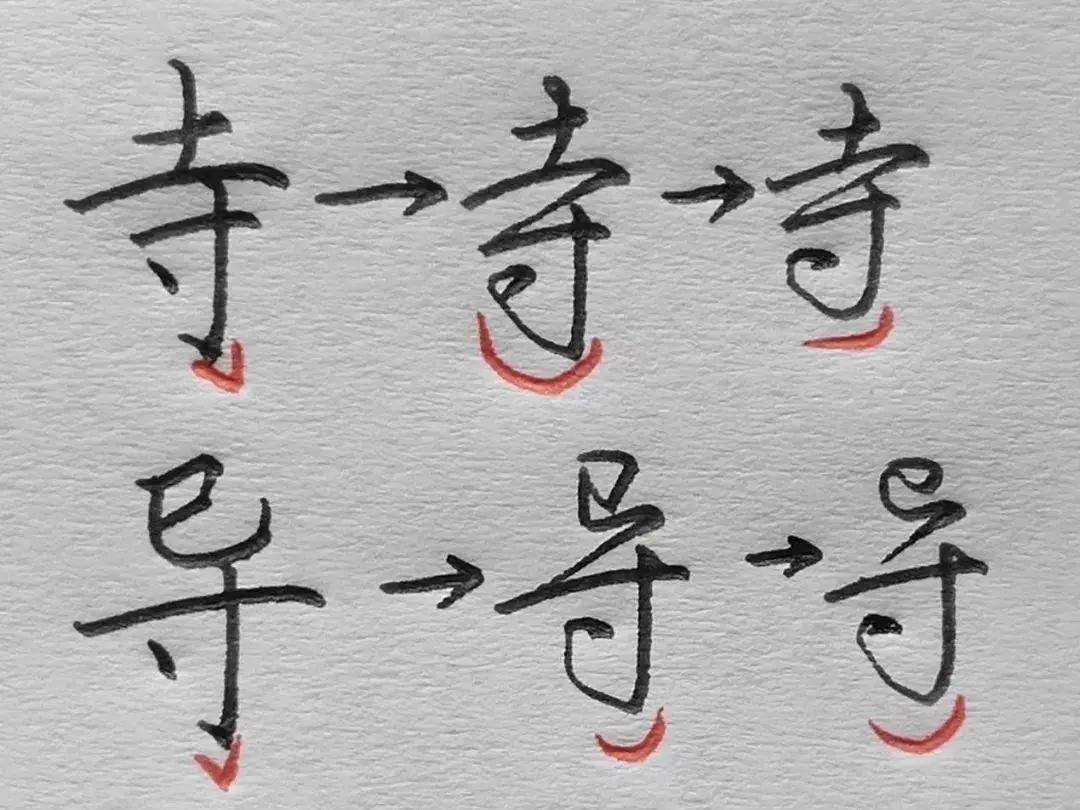 寺→寺→寺
导→导→导